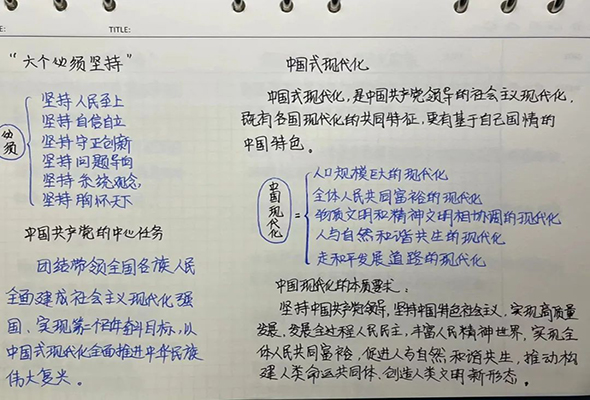 TITLE:
“六个必须坚持”
坚持人民至上
坚持自信自立
坚持守正创新
坚持问题导向
坚持系统观念
坚持胸怀天下
必须
中国共产党的中心任务
团结带领全国各族人民
全面建成社会主义现代化强
国、实现第二个百年奋斗目标，以
中国式现代化全面推进中华民族
伟大复兴。
中国式现代化
中国式现代化，是中国共产党领导的社会主义现代化，
既有各国现代化的共同特征，更有基于自己国情的
中国特色。
中国现代化
=
人口规模巨大的现代化
全体人民共同富裕的现代化
物质文明和精神文明相协调的现代化
人与自然和谐共生的现代化
走和平发展道路的现代化
中国现代化的本质要求：
坚持中国共产党领导，坚持中国特色社会主义，实现高质量
发展，发展全过程人民民主，丰富人民精神世界，实现全
体人民共同富裕，促进人与自然和谐共生，推动构
建人类命运共同体，创造人类文明新形态。